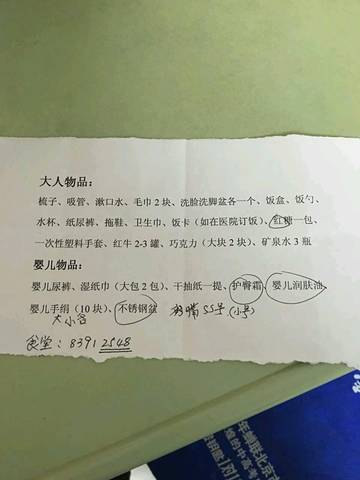 大人物品：
梳子、吸管、漱口水、毛巾2块、洗脸洗脚盆各一个、饭盒、饭勺、
水杯、纸尿裤、拖鞋、卫生巾、饭卡（如在医院订饭）、红糖一包、
一次性塑料手套、红牛2-3罐、巧克力（大块2块）、矿泉水3瓶
婴儿物品：
婴儿尿裤、湿纸巾（大包2包）、干抽纸一提、护臀霜、婴儿润肤油、
婴儿手绢（10块）、不锈钢盆 奶嘴SS号（小号）
大小各
食堂：8391 2548